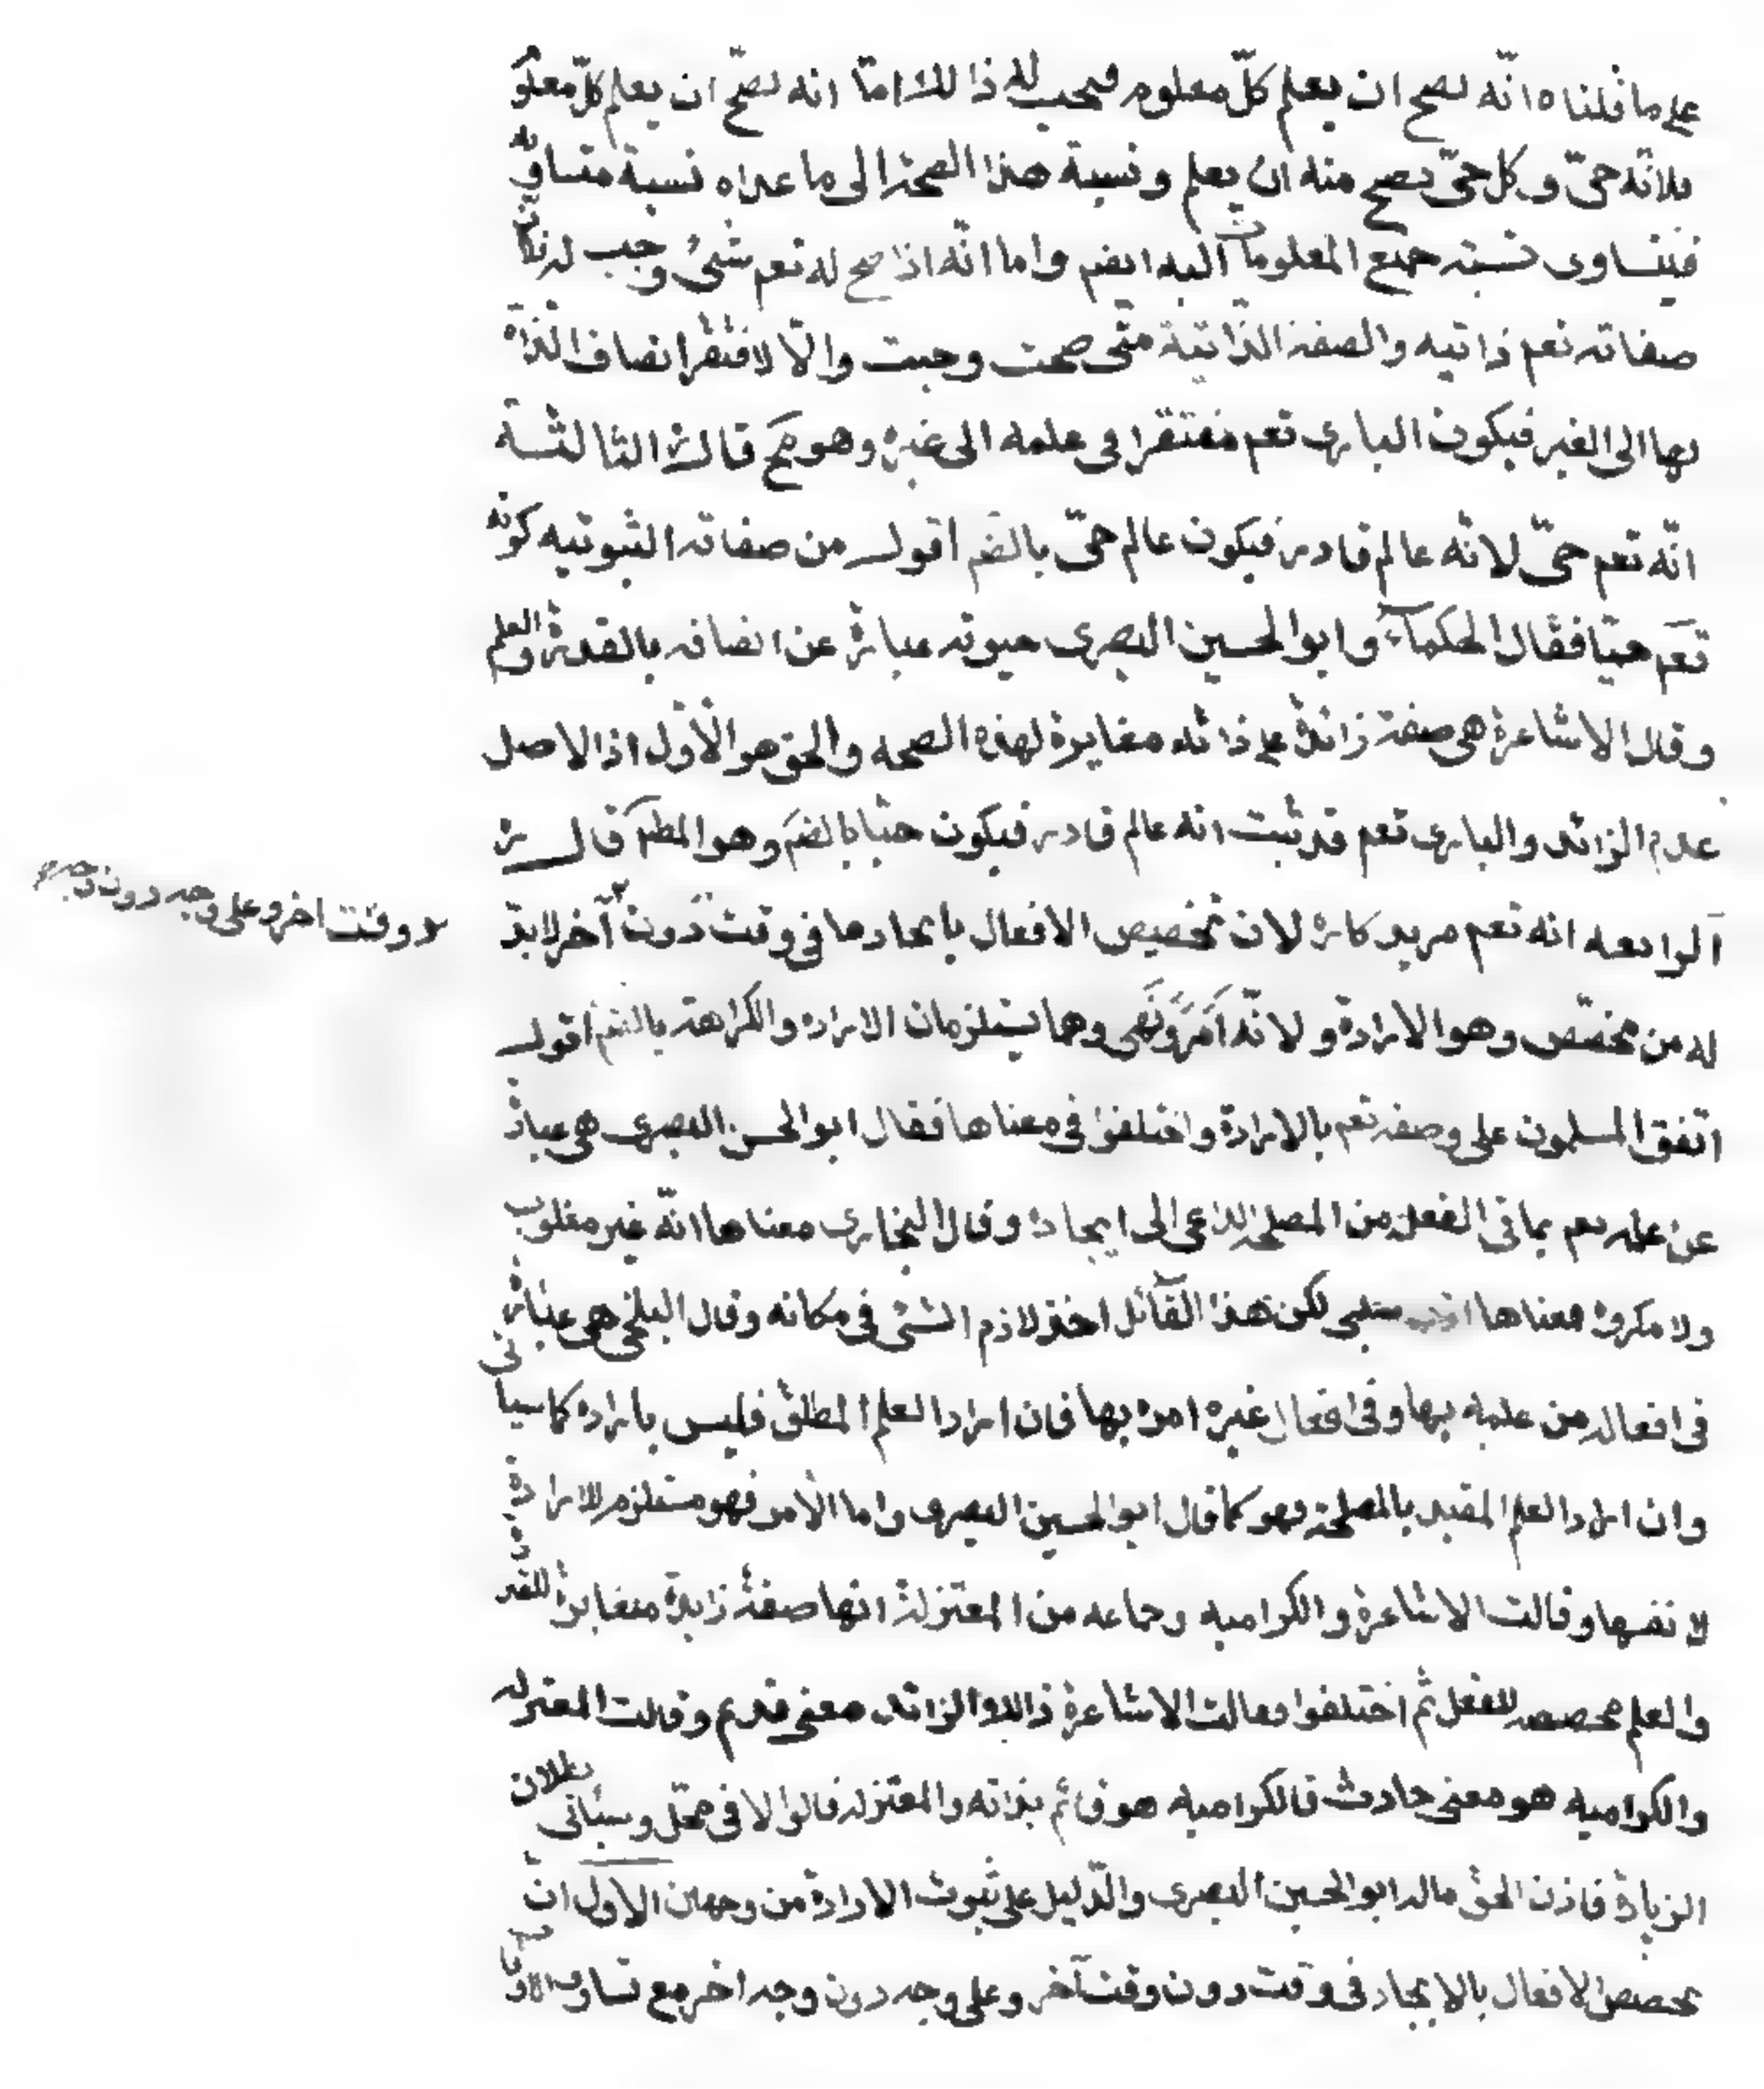 على ما قلناه انّه يصح ان يعلم كلّ معلوم فيجب له ذالك امّا انه يصحّ ان يعلم كلّ معلو
فلانّه حىّ و كل حىّ يصح منه ان يعلم و نسبة هذا الصحة الى ما عداه نسبة متساويه
فيتساوى نسبته جميع المعلومات اليه ايضم واما انّه اذا صح له تعم شىئ وجب له
صفاته تعم ذاتيه والصفة الذاتية متى صحت وجبت والّا لافتقر اتصاف الذات
بها الى الغير فيكون البارى تعم مفتقرا فى علمه الى غيره وهو مح قال الثالثة
انّه تعم حىّ لانّه عالم قادر فيكون عالم حىّ بالضم اقول من صفاته الثبوتيه كونه
تعم حيّا فقال الحكماء وابو الحسين البصرى حيوته عبارة عن اتصافه بالقدرة والعلم
وقال الاشاعرة هى صفة زائدة على ذاته مغايرة لهذه الصحه والحق هو الاول اذ الاصل
عدم الزائد والبارى تعم قد ثبت انه عالم قادر فيكون حيّا بالضم وهو المطم قال
الرابعه انه تعم مريد كاره لان تخصيص الافعال بايجادها فى وقت دون آخر لابدّ
وقت اخر وعلى وجه دون وجه
له من مخصّص وهو الارادة و لانّه اَمَرَ وَنَهَى وهما يستلزمان الاراده والكراهة بالضم اقول
اتفق المسلمون على وصفه تعم بالارادة واختلفوا فى معناها فقال ابو الحسن البصرى هى عبارة
عن علمه تعم بما فى الفعل من المصلحة الداعى الى ايجاده وقال البخارى معناها انّه غير مغلوب
ولا مكروه فمعناها اذن سلبى لكن هذا القائل اخذ لازم الشئى فى مكانه وقال البلخى هى عبارة
فى افعاله من علمه بها وفى افعال غيره امره بها فان اراد العلم المطلق فليس باراده كما سياتى
وان اراد العلم المقيد بالمصلحة فهو كما قال ابو الحسين البصرى واما الامر فهو مستلزم للارادة
لا نفسها وقالت الاشاعرة والكراميه وجماعه من المعتزلة انها صفة زايدة مغايرة للقدرة
والعلم مخصصه للفعل ثم اختلفوا فقالت الاشاعرة ذالك الزائد معنى قديم وقالت المعتزله
والكراميه هو معنى حادث فالكراميه هو قائم بذاته والمعتزله قالوا لا فى محلّ وسيأتى بطلان
الزيادة فاذن الحق ما قاله ابو الحسين البصرى والدّليل على ثبوت الارادة من وجهين الاول ان
تخصص الافعال بالايجاد فى وقت دون وقت آخر وعلى وجه دون وجه اخر مع تساوى